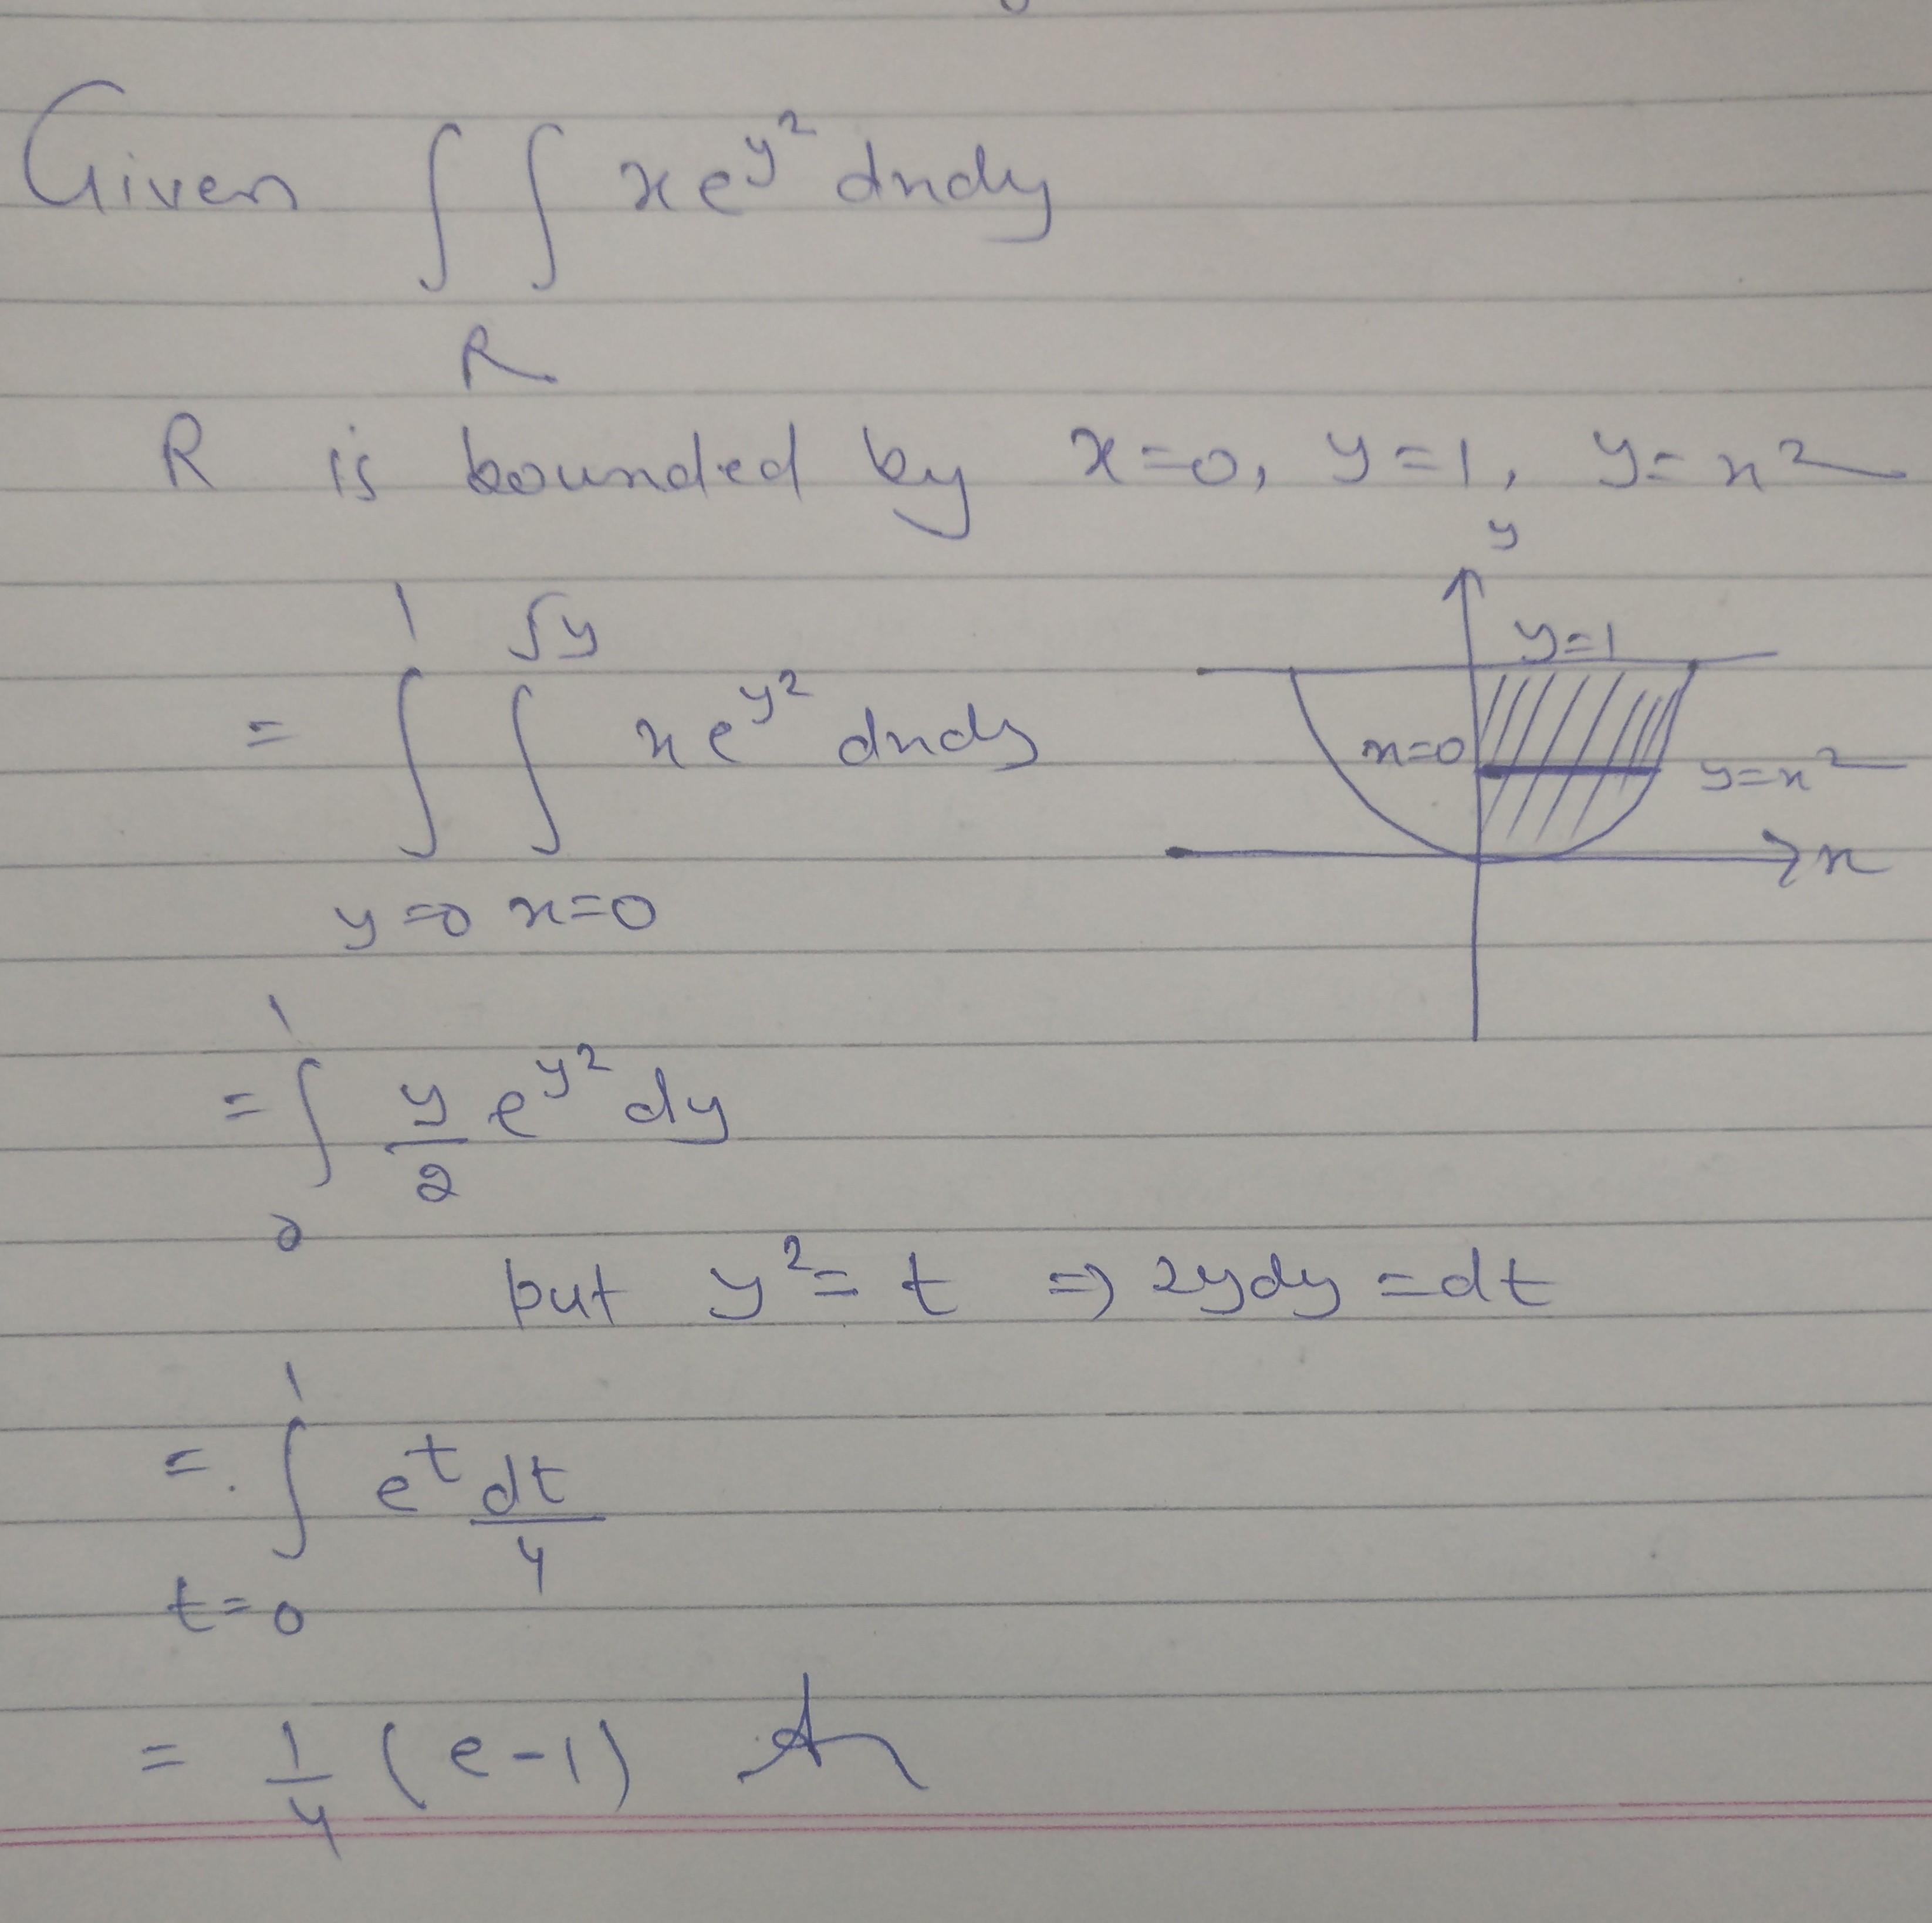 Given ∫∫ xe^{y²} dxdy
R
R is bounded by x=0, y=1, y=x²
y
1 √y
= ∫ ∫ xe^{y²} dxdy
y=0 x=0
y=1
x=0
y=x²
x
1
= ∫ y/2 e^{y²} dy
0
put y²=t ⇒ 2ydy=dt
1
=. ∫ e^t dt/4
t=0
= 1/4 (e-1)